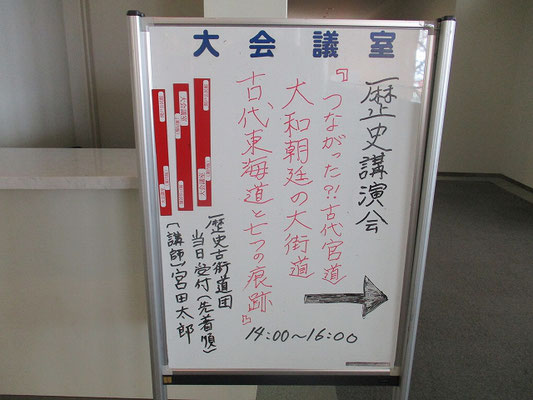 大会議室
歴史講演会
『つながった?!古代官道
大和朝廷の大街道
古代東海道と七つの痕跡』
14:00~16:00
歴史古街道団
当日受付(先着順)
〔講師〕宮田太郎